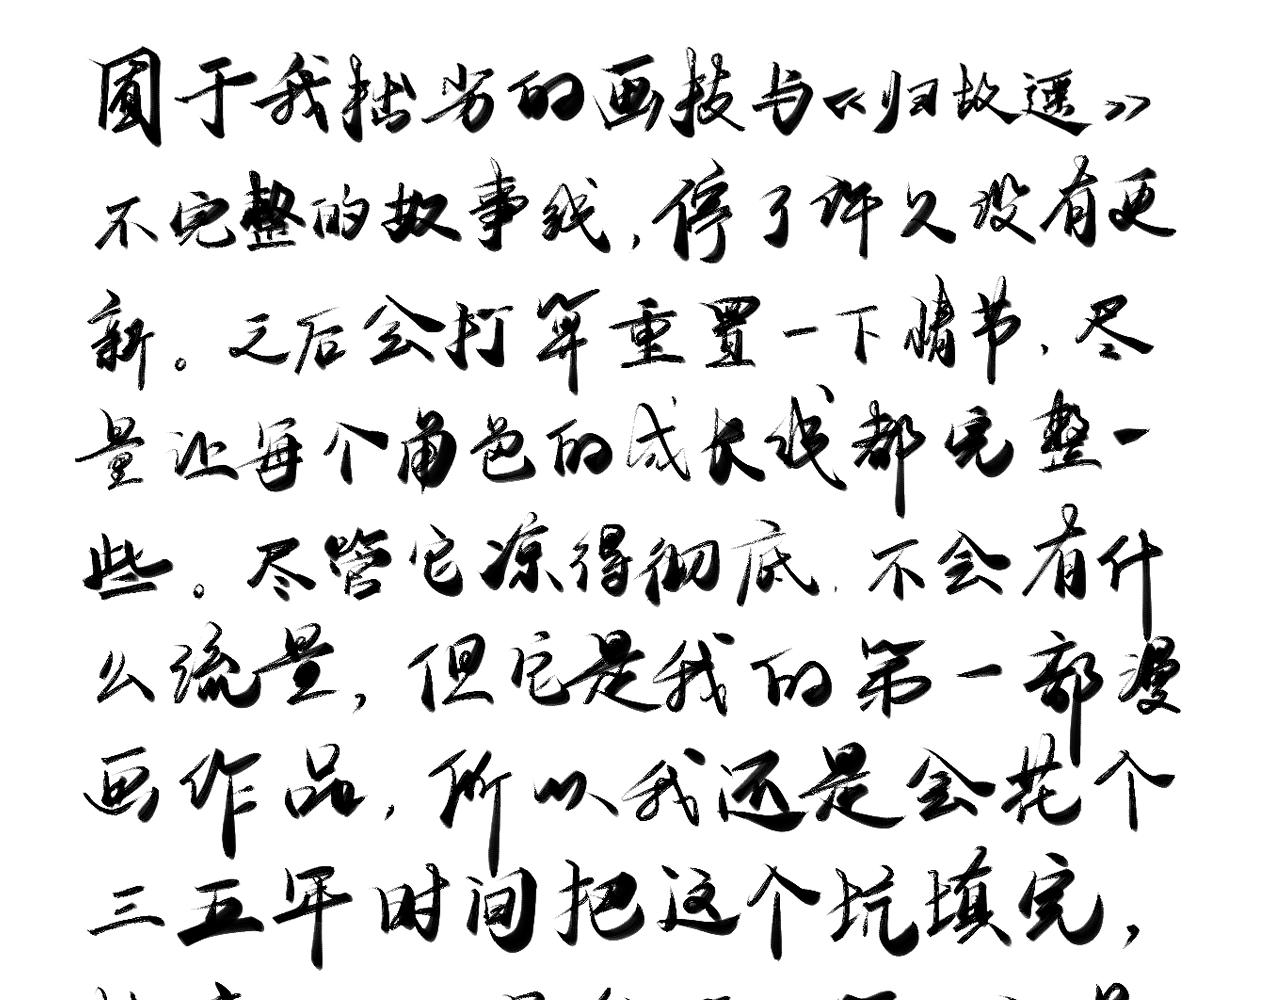 囿于我拙劣的画技与《归故遥》
不完整的故事线，停了许久没有更
新。之后会打算重置一下情节，尽
量让每个角色的成长线都完整一
些。尽管它凉得彻底，不会有什
么流量，但它是我的第一部漫
画作品，所以我还是会花个
三五年时间把这个坑填完，